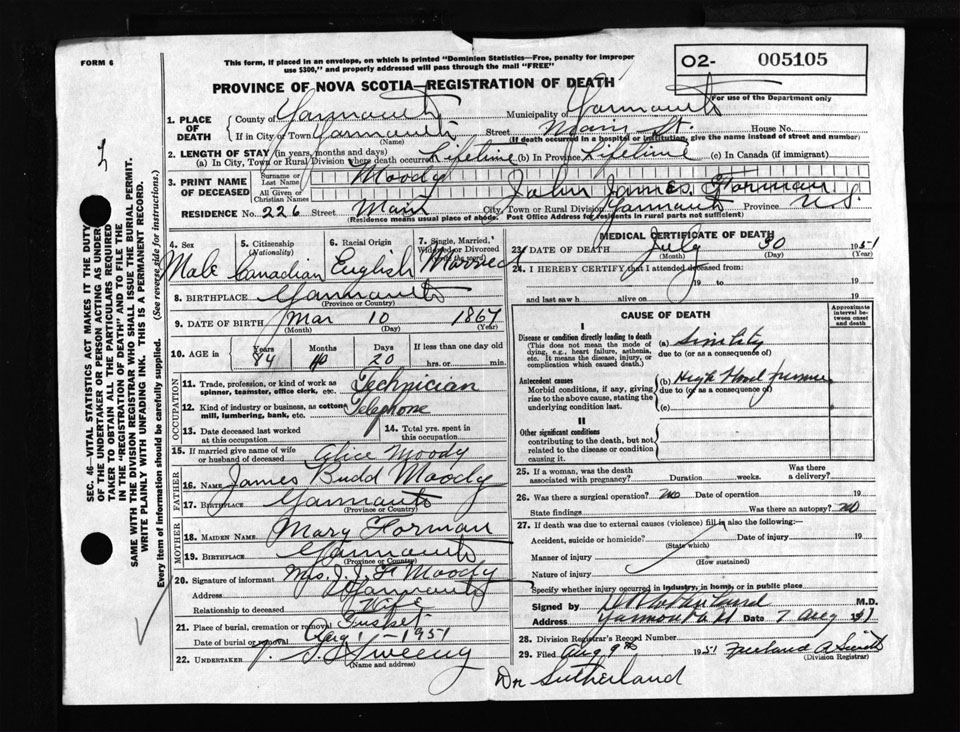 FORM 6
This form, if placed in an envelope, on which is printed "Dominion Statistics—Free, penalty for improper
use $300," and properly addressed will pass through the mail "FREE"
O2- 005105
For use of the Department only
PROVINCE OF NOVA SCOTIA—REGISTRATION OF DEATH
1. PLACE OF DEATH
County of Yarmouth Municipality of Yarmouth
If in City or Town Yarmouth Street Main St. House No.
(Name) (If death occurred in a hospital or institution, give name instead of street and number)
2. LENGTH OF STAY (in years, months and days)
(a) In City, Town or Rural Division where death occurred Lifetime (b) In Province Lifetime (c) In Canada (if immigrant)
3. PRINT NAME OF DECEASED
Surname or Last Name Moody
All Given or Christian Names John James Forman
RESIDENCE No. 226 Street Main City, Town or Rural Division Yarmouth Province N.S.
(Residence means usual place of abode. Post Office Address for residents in rural parts not sufficient)
4. Sex Male
5. Citizenship (Nationality) Canadian
6. Racial Origin English
7. Single, Married, Widowed or Divorced (write the word) Married
8. BIRTHPLACE Yarmouth
(Province or Country)
9. DATE OF BIRTH Mar 10 1867
(Month) (Day) (Year)
10. AGE in Years 84 Months Days 20 If less than one day old
hrs. or min.
OCCUPATION
11. Trade, profession, or kind of work as spinner, teamster, office clerk, etc. Technician
12. Kind of industry or business, as cotton mill, lumbering, bank, etc. Telephone
13. Date deceased last worked at this occupation
14. Total yrs. spent in this occupation
15. If married give name of wife or husband of deceased Alice Moody
FATHER
16. NAME James Budd Moody
17. BIRTHPLACE Yarmouth
(Province or Country)
MOTHER
18. MAIDEN NAME Mary Forman
19. BIRTHPLACE Yarmouth
(Province or Country)
20. Signature of informant Mrs. J. J. F. Moody
Address Yarmouth
Relationship to deceased Wife
21. Place of burial, cremation or removal Tusket
Date of burial or removal Aug 1 - 1951
22. UNDERTAKER Sweeny
(Name and address)
MEDICAL CERTIFICATE OF DEATH
23. DATE OF DEATH July 30 1951
(Month) (Day) (Year)
24. I HEREBY CERTIFY that I attended deceased from:
19 to 19
and last saw h alive on 19
CAUSE OF DEATH
Approximate interval between onset and death
I
Disease or condition directly leading to death
(This does not mean the mode of dying, e.g., heart failure, asthenia, etc. It means the disease, injury, or complication which caused death.)
(a) Sinility
due to (or as a consequence of)
Antecedent causes
Morbid conditions, if any, giving rise to the above cause, stating the underlying condition last.
(b) High blood pressure
due to (or as a consequence of)
(c)
II
Other significant conditions
contributing to the death, but not related to the disease or condition causing it.
25. If a woman, was the death associated with pregnancy? Duration weeks. Was there a delivery?
26. Was there a surgical operation? no Date of operation 19
State findings Was there an autopsy? no
27. If death was due to external causes (violence) fill in also the following:—
Accident, suicide or homicide? Date of injury 19
(State which)
Manner of injury
(How sustained)
Nature of injury
Specify whether injury occurred in industry, in home, or in public place
Signed by M.D.
Address Yarmouth Date 7 Aug
28. Division Registrar's Record Number
29. Filed Aug 9th 1951
(Division Registrar)
Dr Sutherland
SEC. 46—VITAL STATISTICS ACT MAKES IT THE DUTY
OF THE UNDERTAKER OR PERSON ACTING AS UNDER-
TAKER TO OBTAIN ALL THE PARTICULARS REQUIRED
IN THE "REGISTRATION OF DEATH" AND TO FILE THE
SAME WITH THE DIVISION REGISTRAR WHO SHALL ISSUE THE BURIAL PERMIT.
WRITE PLAINLY WITH UNFADING INK. THIS IS A PERMANENT RECORD.
Every item of information should be carefully supplied. (See reverse side for instructions.)